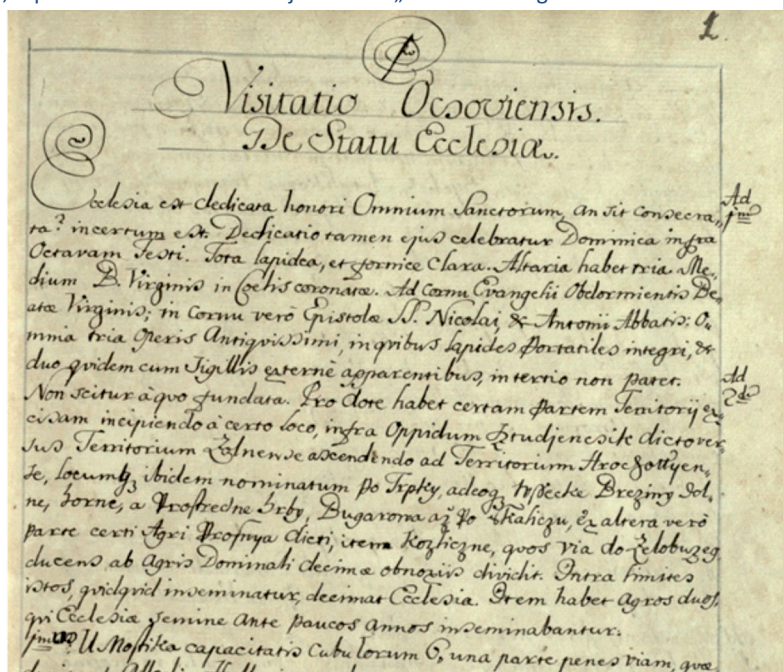 1.
Visitatio Ocsoviensis.
De Statu Ecclesiæ.
Ecclesia est dedicata honori Omnium Sanctorum, an sit consecra„ Ad 1mũ
ta? incertum est. Dedicatio tamen ejus celebratur Dominica infra
Octavam Festi. Tota lapidea, et fornice Clara. Altaria habet tria. Me„
dium B. Virginis in Coelis coronatæ. Ad Cornu Evangelii Obdormientis Be„
atæ Virginis; in Cornu verò Epistolæ SS. Nicolai, & Antonii Abbatis: O„
mnia tria Operis Antiquissimi, in qvibus lapides Portatiles integri, &
duo qvidem cum Sigillis externè apparentibus, in tertio non patet. Ad 2dũ
Non scitur à qvo fundata. Pro dote habet certam Partem Territorij ex„
cisam incipiendo à certo loco, infra Oppidum dicto ver„
sus Territorium Zolnense ascendendo ad Territorium
se, locumq; ibidem nominatum Po Trpky, adeoq; Breziny Dol„
ne, horne, a Prostredne hrby, Bugarowa až Po Skaliczu, Ex altera verò
parte certi Agri dicti, item Kozliczne, quos via do
ducens ab Agris Dominali decimæ obnoxiis dividit. Intra limites
istos, qvidqvid inseminatur, decimat Ecclesia. Item habet Agros duos,
qvi Ecclesiæ semine ante paucos annos inseminabantur.
1mus U Mostika capacitatis Cubulorum 6, una parte penes viam, quæ